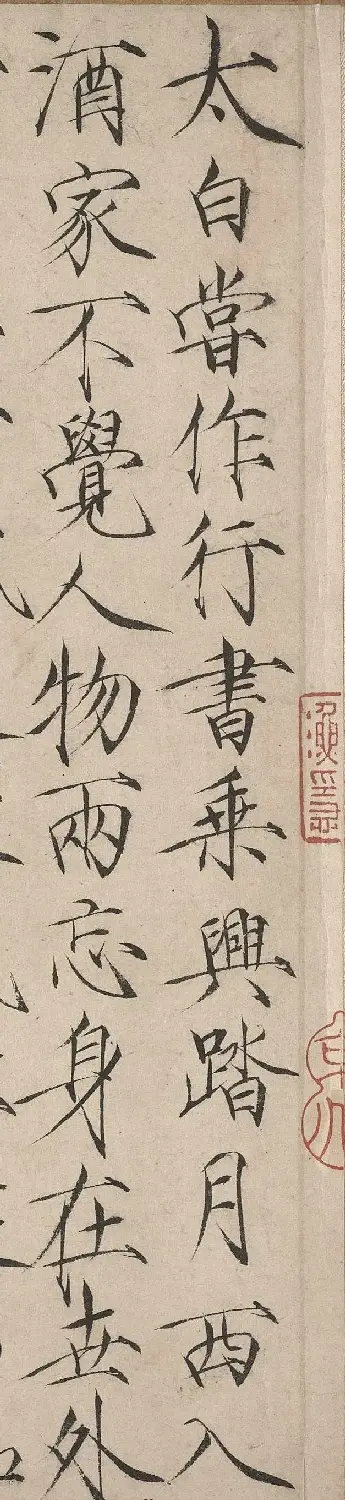 太白嘗作行書乘興踏月西入
酒家不覺人物兩忘身在世外